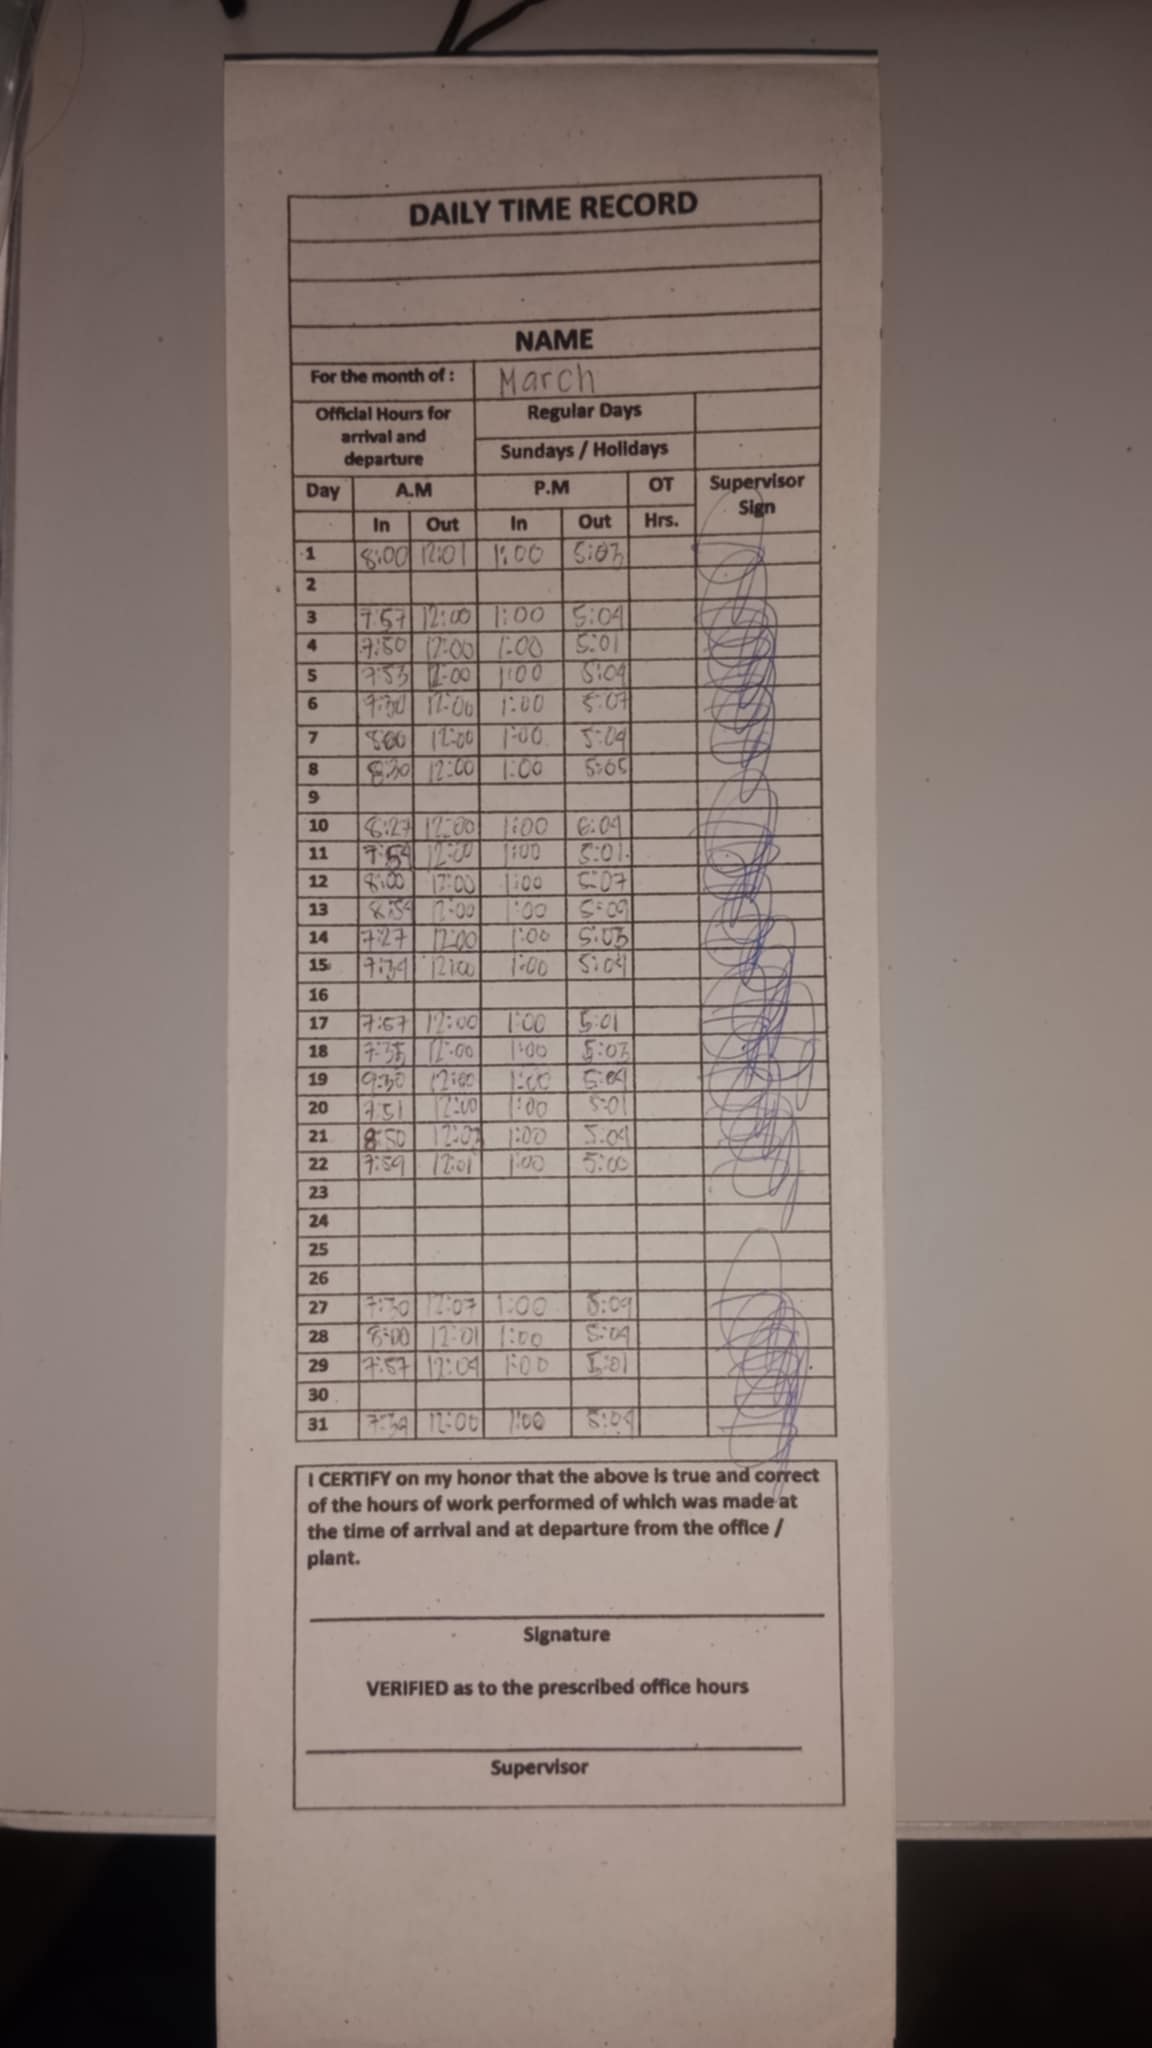 DAILY TIME RECORD
NAME
For the month of : March
Official Hours for arrival and departure
Regular Days
Sundays / Holidays
Day A.M P.M OT Supervisor Sign
In Out In Out Hrs.
1 8:00 12:01 1:00 5:03
2
3 7:57 12:00 1:00 5:04
4 7:50 12:00 1:00 5:01
5 7:53 12:00 1:00 5:04
6 12:00 1:00 5:07
7 800 12:00 1:00 5:04
8 8:30 12:00 1:00 5:05
9
10 8:27 12:00 1:00
11 7:59 12:00 1:00 5:01
12 8:00 12:00 1:00 5:07
13 12:00 1:00 5:09
14 7:27 12:00 1:00 5:03
15 7:39 12:00 1:00 5:04
16
17 7:57 12:00 1:00 5:01
18 7:35 12:00 1:00 5:03
19 9:30 12:00 1:00 5:09
20 7:51 12:00 1:00 5:01
21 8:50 1:00 5:09
22 7:59 12:01 1:00 5:00
23
24
25
26
27 7:30 12:07 1:00 5:09
28 8:00 12:01 1:00 5:09
29 7:57 12:09 1:00 5:01
30
31 7:39 12:00 1:00 5:09
I CERTIFY on my honor that the above is true and correct
of the hours of work performed of which was made at
the time of arrival and at departure from the office /
plant.
Signature
VERIFIED as to the prescribed office hours
Supervisor